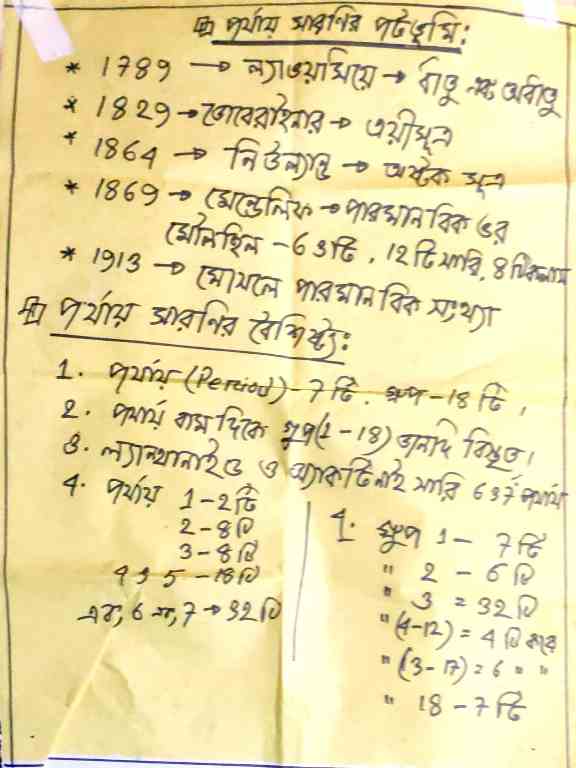 পর্যায় সারণির পটভূমি:
* 1789 → ল্যাওয়াসিয়ে → ধাতু এবং অধাতু
* 1829 → ডোবেরাইনার → ত্রয়ীসূত্র
* 1864 → নিউল্যান্ড → অষ্টক সূত্র
* 1869 → মেন্ডেলিফ → পারমানবিক ভর
মৌলছিল - 63টি, 12টি সারি, 8টি কলাম
* 1913 → মোযলে পারমানবিক সংখ্যা
পর্যায় সারণির বৈশিষ্ট্য:
1. পর্যায় (Period) - 7টি. গ্রুপ - 18 টি,
2. পর্যায় বাম দিকে গ্রুপ(1-18) ডানদি বিস্তৃত।
3. ল্যান্থানাইড ও অ্যাকটিনাই সারি 6 ও 7 পর্যায়
4. পর্যায় 1-2টি
2-8টি
3-8টি
4 ও 5 - 18টি
6 7 → 32 টি
4. গ্রুপ 1 - 7টি
" 2 - 6 টি
" 3 = 32 টি
" (4-12) = 4 টি করে
" (3-17) = 6 " "
" 18 - 7 টি